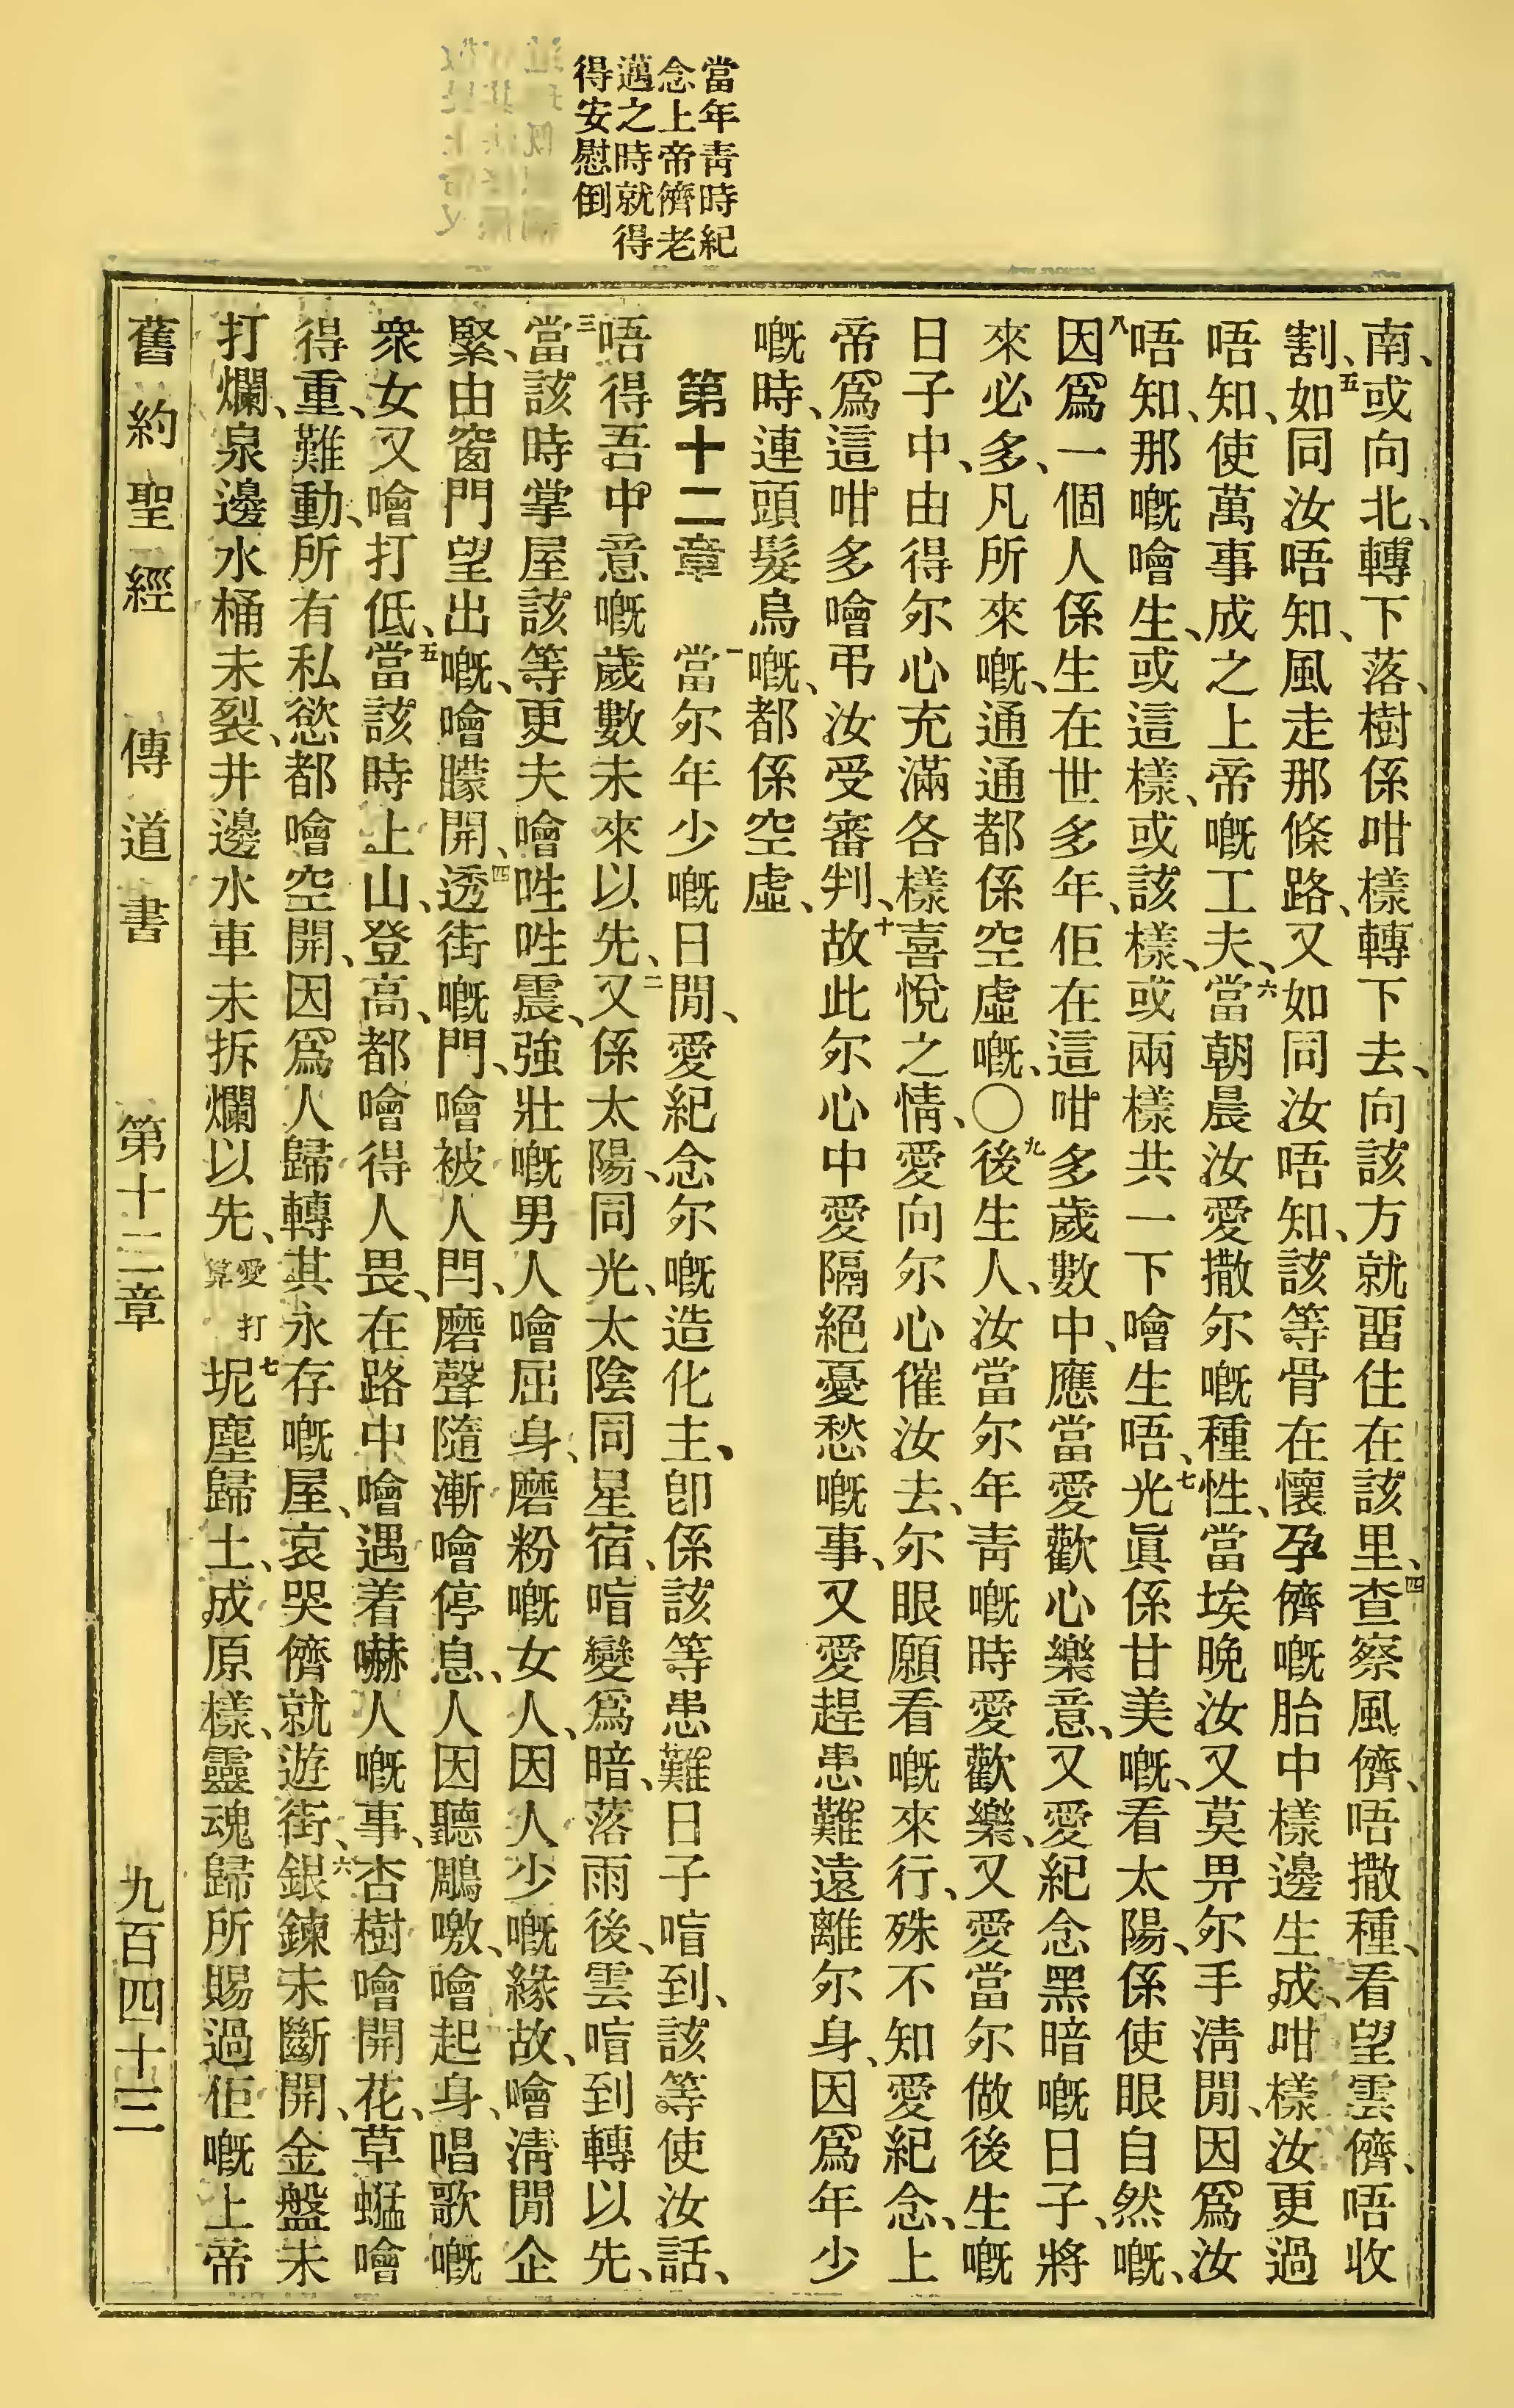 當年青時紀
念上帝儕老
邁之時就得
得安慰倒
南、或向北、轉下落、樹係咁樣轉下去、向該方就畱住在該里、四查察風儕、唔撒種、看望雲儕、唔收
割、五如同汝唔知、風走那條路、又如同汝唔知、該等骨在懷孕儕嘅胎中樣邊生成、咁樣汝更過
唔知、使萬事成之上帝嘅工夫、六當朝晨汝愛撒尔嘅種性、當埃晚汝又莫畀尔手淸閒、因爲汝
唔知、那嘅噲生、或這樣、或該樣、或兩樣共一下噲生唔、七光眞係甘美嘅、看太陽、係使眼自然嘅、
八因爲一個人係生在世多年、佢在這咁多歲數中、應當愛歡心樂意、又愛紀念黑暗嘅日子、將
來必多、凡所來嘅、通通都係空虛嘅、〇九後生人、汝當尔年靑嘅時愛歡樂、又愛當尔做後生嘅
日子中、由得尔心充滿各樣喜悅之情、愛向尔心催汝去、尔眼願看嘅來行、殊不知愛紀念、上
帝爲這咁多噲弔汝受審判、十故此尔心中愛隔絕憂愁嘅事、又愛趕患難遠離尔身、因爲年少
嘅時、連頭髮烏嘅、都係空虛、
第十二章 一當尔年少嘅日閒、愛紀念尔嘅造化主、卽係該等患難日子喑到、該等使汝話、
唔得吾中意嘅歲數未來以先、二又係太陽、同光、太陰同星宿、喑變爲暗、落雨後、雲喑到轉以先、
三當該時掌屋該等更夫噲呫呫震、強壯嘅男人噲屈身、磨粉嘅女人、因人少嘅緣故、噲淸閒企
緊、由窗門望出嘅、噲矇開、四透街嘅門、噲被人閂、磨聲隨漸噲停息、人因聽鵰噭、噲起身、唱歌嘅
衆女又噲打低、五當該時上山、登高、都噲得人畏、在路中噲遇着嚇人嘅事、杏樹噲開花、草蜢噲
得重、難動、所有私慾都噲空開、因爲人歸轉其永存嘅屋、哀哭儕就遊街、六銀鍊未斷開、金盤未
打爛、泉邊水桶未裂、井邊水車未拆爛以先、愛打算七坭塵歸土、成原樣、靈魂歸所賜過佢嘅上帝
舊約聖經 傳道書 第十二章 九百四十三